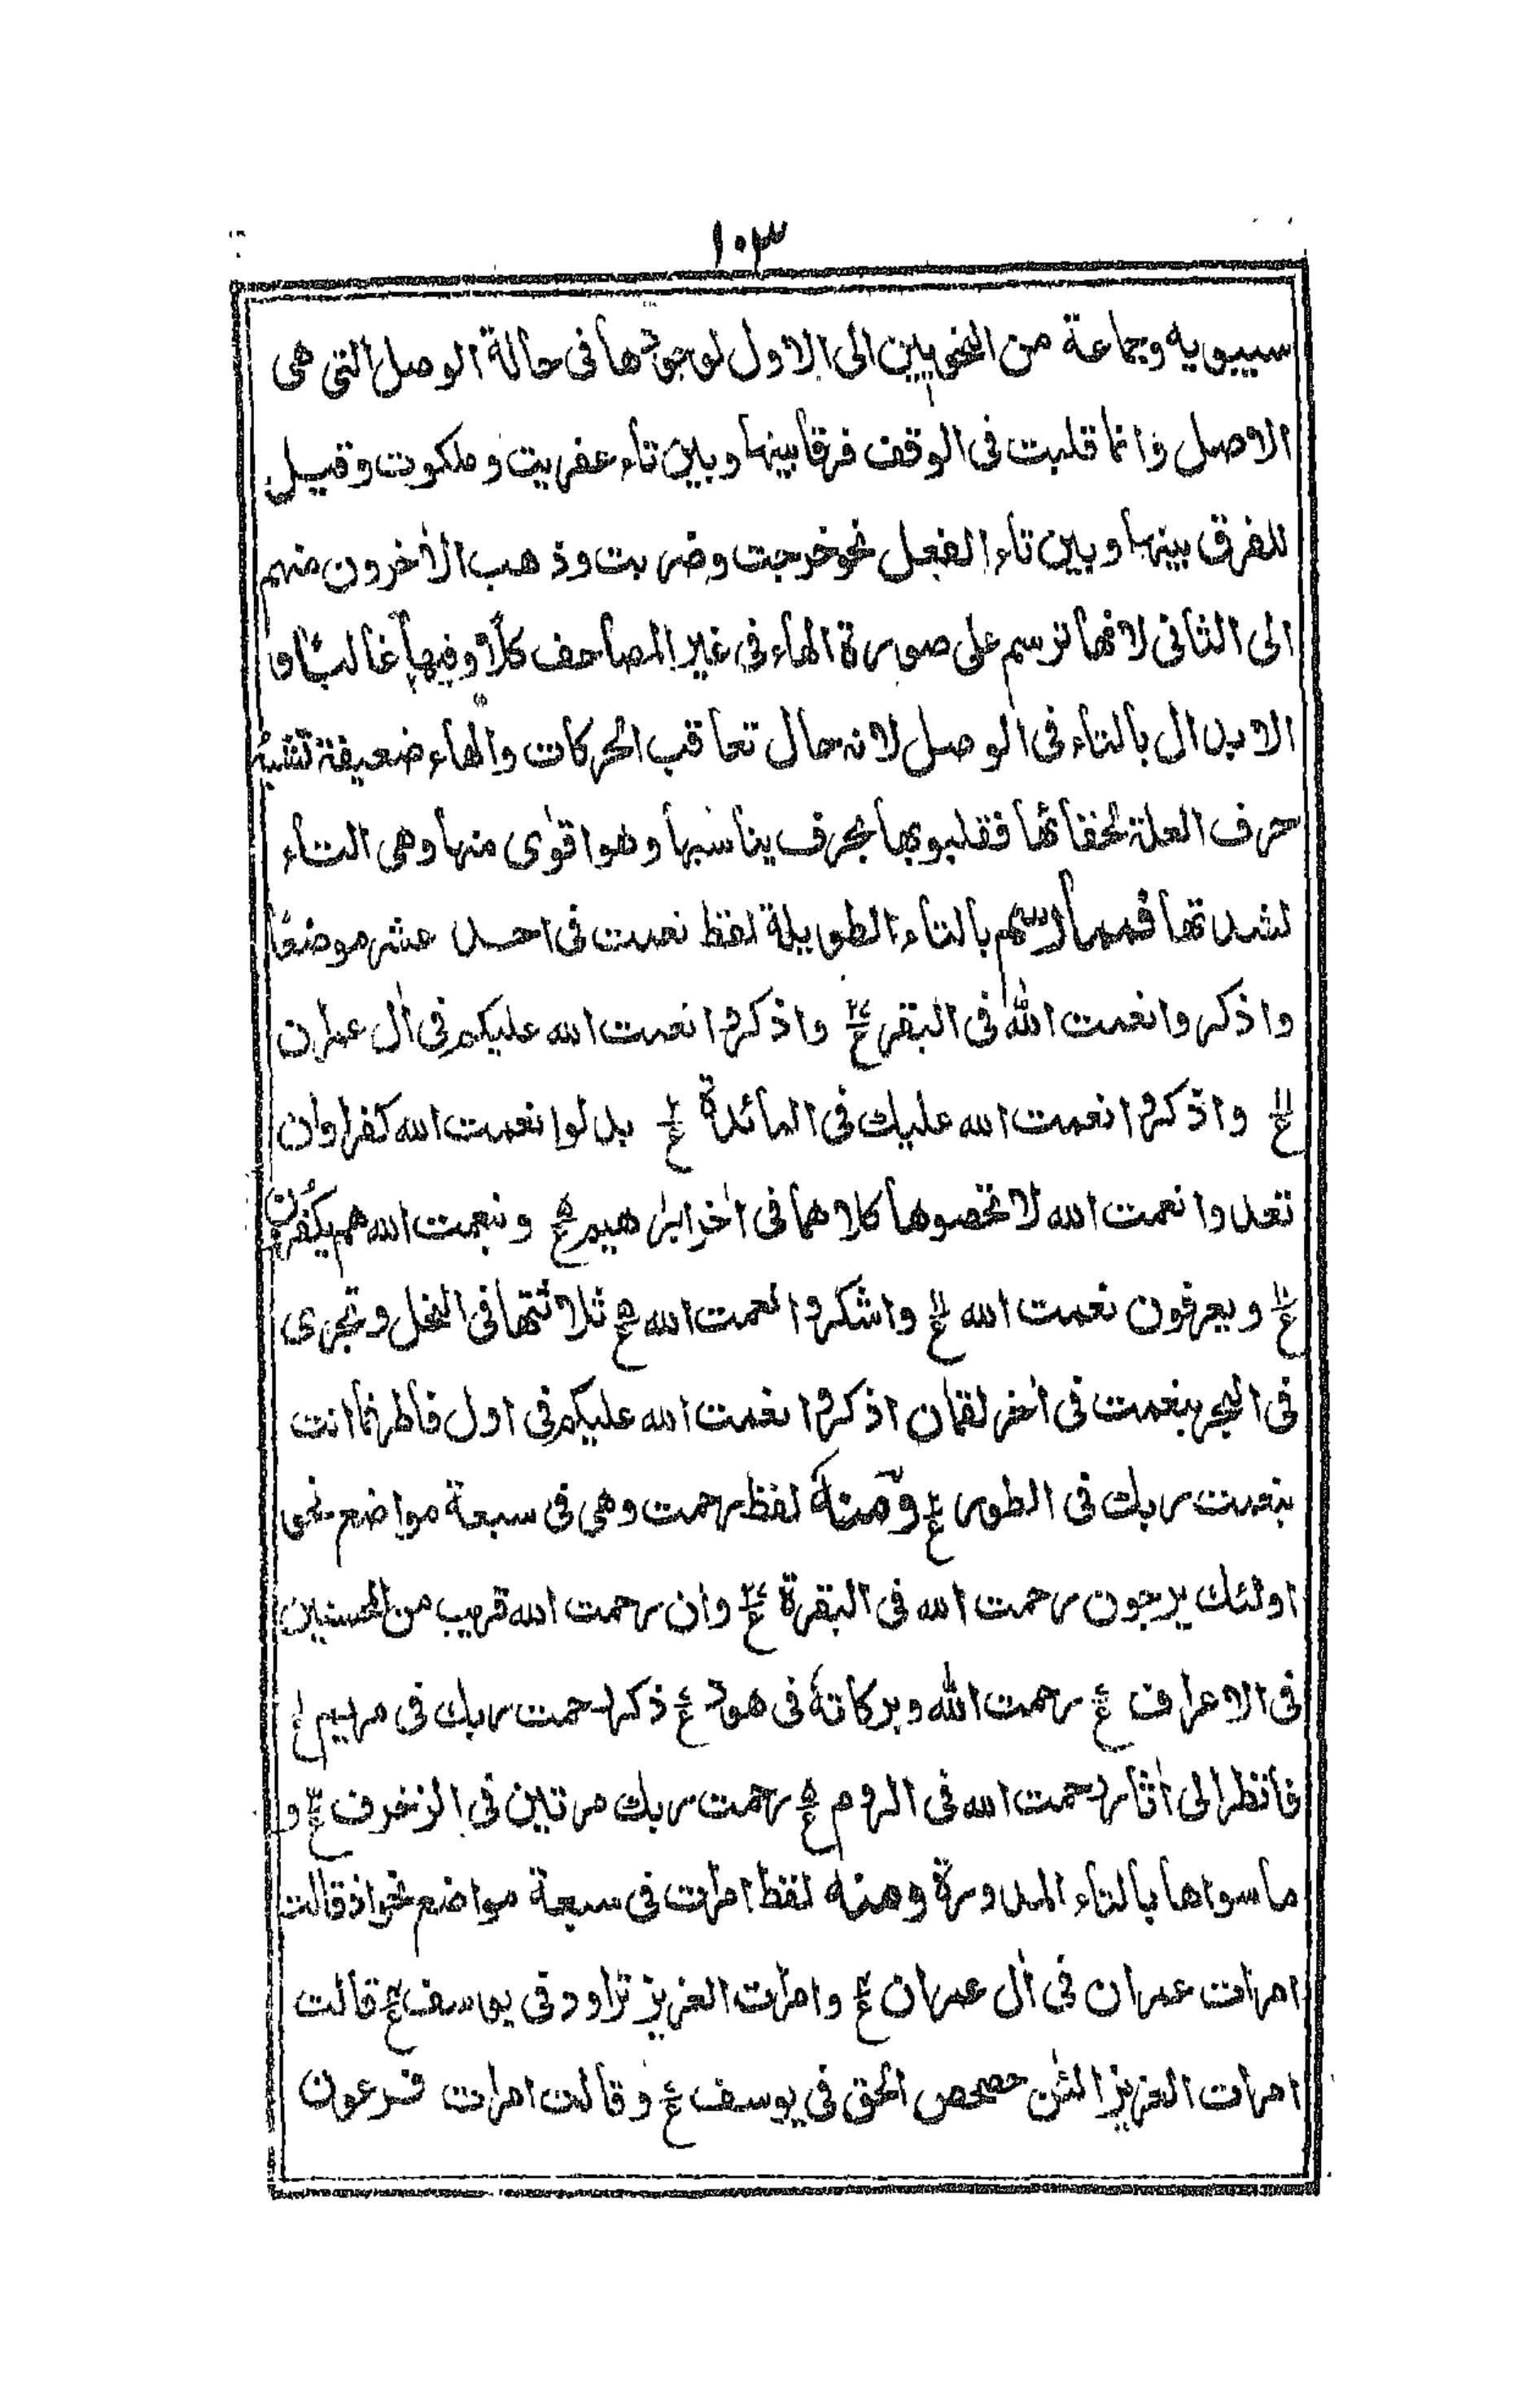 ١٠٣
سيبويه وجماعة من النحويين الى الاول لوجودها فى حالة الوصل التى هى
الاصل وانما قلبت فى الوقف فرقا بينها وبين تاء عفريت وملكوت وقيل
للفرق بينها وبين تاء الفعل نحو خرجت وضربت وذهب الاٰخرون منهم
الى الثانى لانها ترسم على صورة الهاء فى غير المصاحف كلًا وفيها غالبًا و
الابدال بالتاء فى الوصل لانه حال تعاقب الحركات والهاء ضعيفة تشبه
حرف العلة لخفائها فقلبوها بحرف يناسبها وهو اقوٰى منها وهى التاء
لشدتها فمما رسم بالتاء الطويلة لفظ نعمت فى احد عشر موضعًا
واذكروا نعمت الله فى البقر ع واذكروا نعمت الله عليكم فى اٰل عمران
ع واذكروا نعمت الله عليك فى المائدة ع بدلوا نعمت الله كفرا وان
تعدوا نعمت الله لا تحصوها كلاهما فى اٰخر ابراهيم ع وبنعمت الله هم يكفرون
ع ويعرفون نعمت الله ع واشكروا نعمت الله ع ثلاثتها فى النحل وتجرى
فى البحر بنعمت فى اٰخر لقمان اذكروا نعمت الله عليكم فى اول فاطر فما انت
بنعمت ربك فى الطور ع ومنه لفظ رحمت وهى فى سبعة مواضع نحو
اولئك يرجون رحمت الله فى البقرة ع وان رحمت الله قريب من المحسنين
فى الاعراف ع رحمت الله وبركاته فى هود ع ذكر رحمت ربك فى مريم ع
فانظر الى اٰثار رحمت الله فى الروم ع رحمت ربك مرتين فى الزخرف ع و
ما سواها بالتاء المدورة ومنه لفظ امرات فى سبعة مواضع نحو اذ قالت
امرات عمران فى اٰل عمران ع وامرات العزيز تراود فى يوسف ع قالت
امرات العزيز الئٰن حصحص الحق فى يوسف ع وقالت امرات فرعون